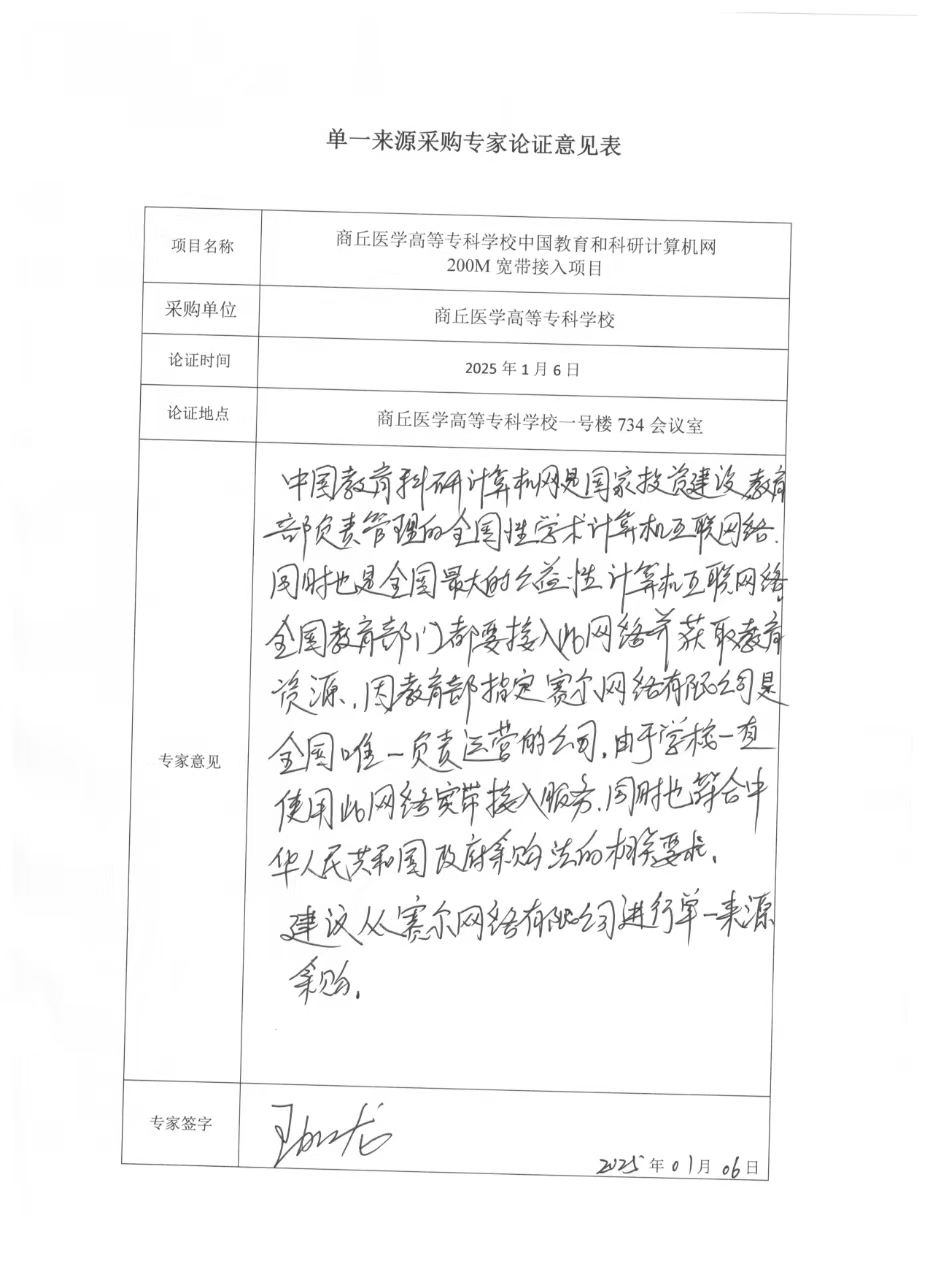 单一来源采购专家论证意见表
项目名称
商丘医学高等专科学校中国教育和科研计算机网
200M 宽带接入项目
采购单位
商丘医学高等专科学校
论证时间
2025 年 1 月 6 日
论证地点
商丘医学高等专科学校一号楼 734 会议室
专家意见
中国教育科研计算机网是国家投资建设,教育
部负责管理的全国性学术计算机互联网络.
同时也是全国最大的公益性计算机互联网络.
全国教育部门都要接入此网络并获取教育
资源.因教育部指定赛尔网络有限公司是
全国唯一负责运营的公司,由于学校一直
使用此网络宽带接入服务.同时也符合中
华人民共和国政府采购法的相关要求.
建议从赛尔网络有限公司进行单一来源
采购.
专家签字
2025 年 01 月 06 日